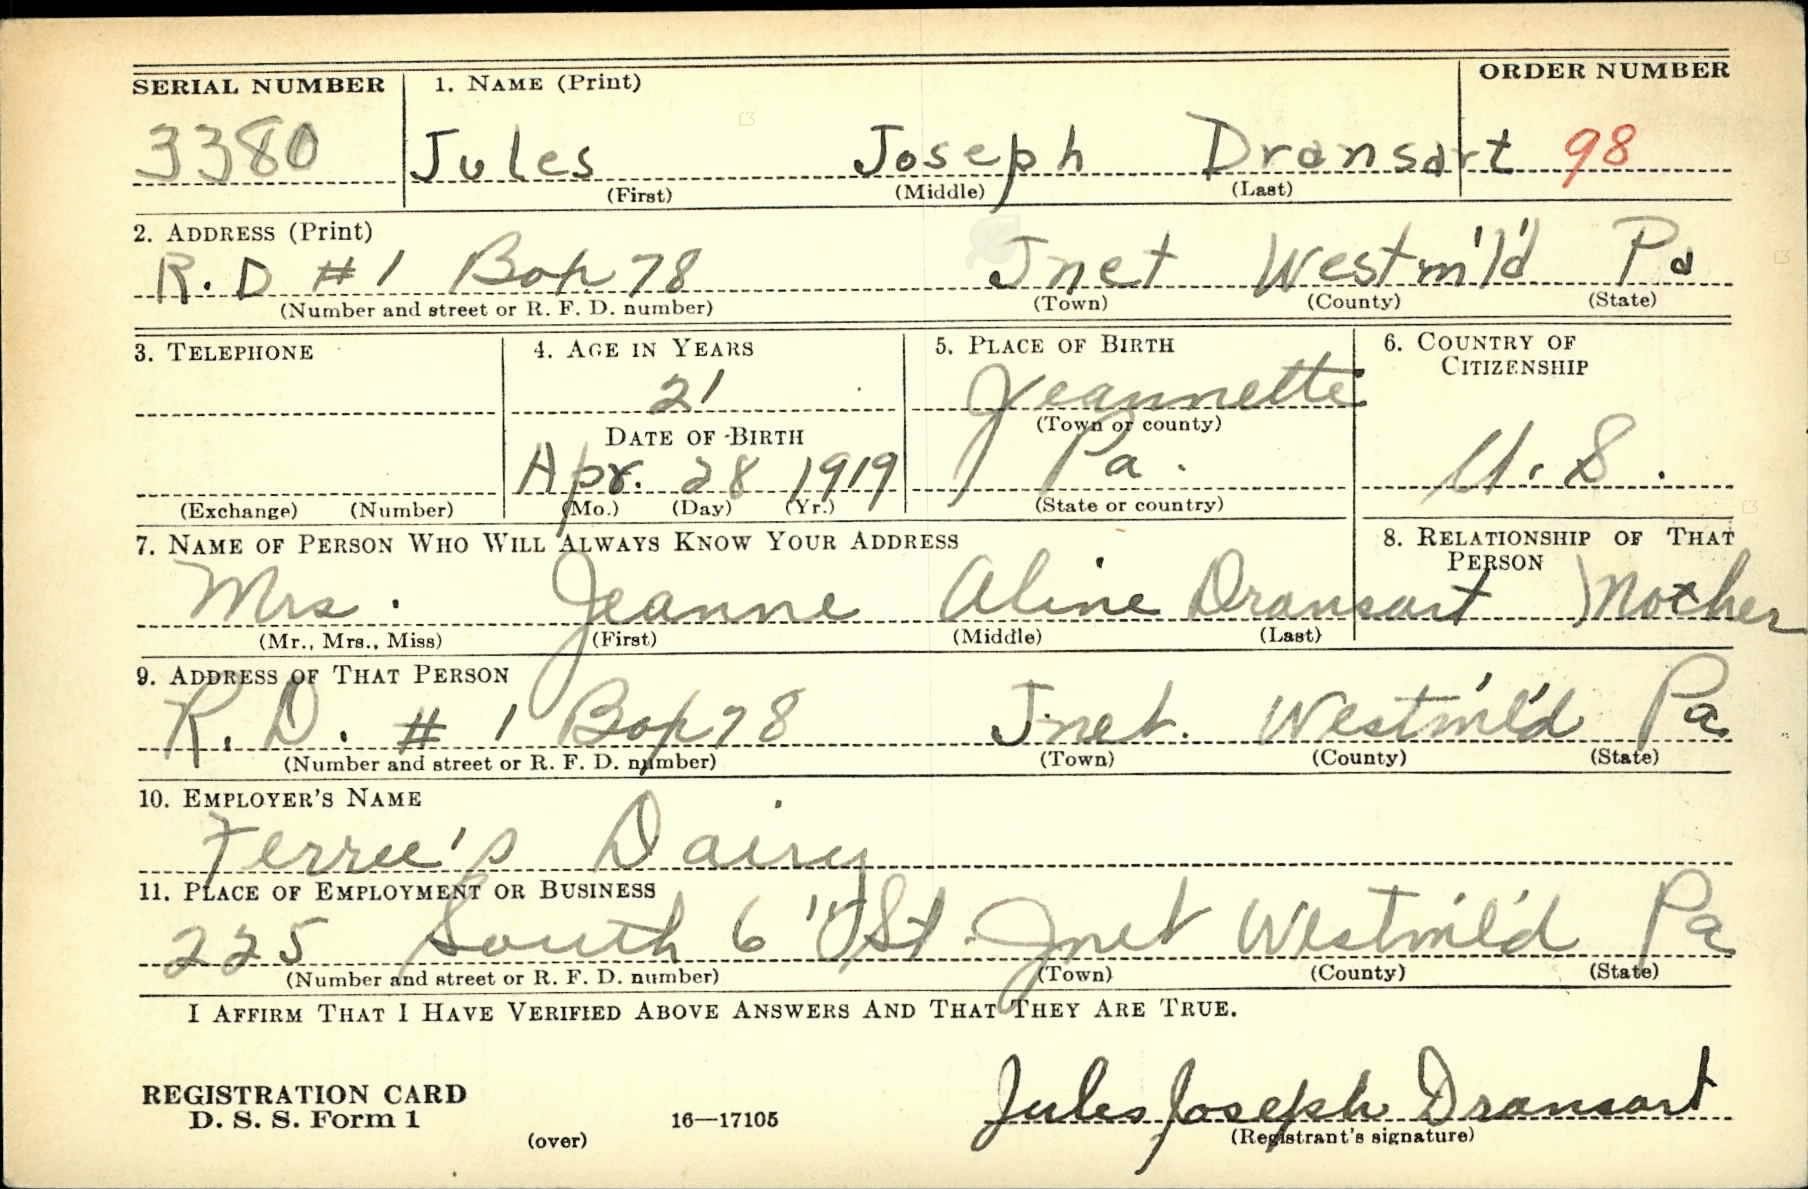 SERIAL NUMBER 1. NAME (Print) ORDER NUMBER
3380 Jules Joseph Dransart 98
(First) (Middle) (Last)
2. ADDRESS (Print)
R. D # 1 Box 78 Jnet Westm'l'd Pa
(Number and street or R. F. D. number) (Town) (County) (State)
3. TELEPHONE 4. AGE IN YEARS 5. PLACE OF BIRTH 6. COUNTRY OF CITIZENSHIP
21 Jeannette
(Town or county)
DATE OF BIRTH
Apr. 28 1919 Pa. U. S.
(Exchange) (Number) (Mo.) (Day) (Yr.) (State or country)
7. NAME OF PERSON WHO WILL ALWAYS KNOW YOUR ADDRESS 8. RELATIONSHIP OF THAT PERSON
Mrs. Jeanne Aline Dransart Mother
(Mr., Mrs., Miss) (First) (Middle) (Last)
9. ADDRESS OF THAT PERSON
R. D. # 1 Box 78 Jnet. Westm'l'd Pa
(Number and street or R. F. D. number) (Town) (County) (State)
10. EMPLOYER'S NAME
Dairy
11. PLACE OF EMPLOYMENT OR BUSINESS
225 South 6 St. Jnet Westm'l'd Pa
(Number and street or R. F. D. number) (Town) (County) (State)
I AFFIRM THAT I HAVE VERIFIED ABOVE ANSWERS AND THAT THEY ARE TRUE.
REGISTRATION CARD
D. S. S. Form 1 16—17105 Jules Joseph Dransart
(over) (Registrant's signature)